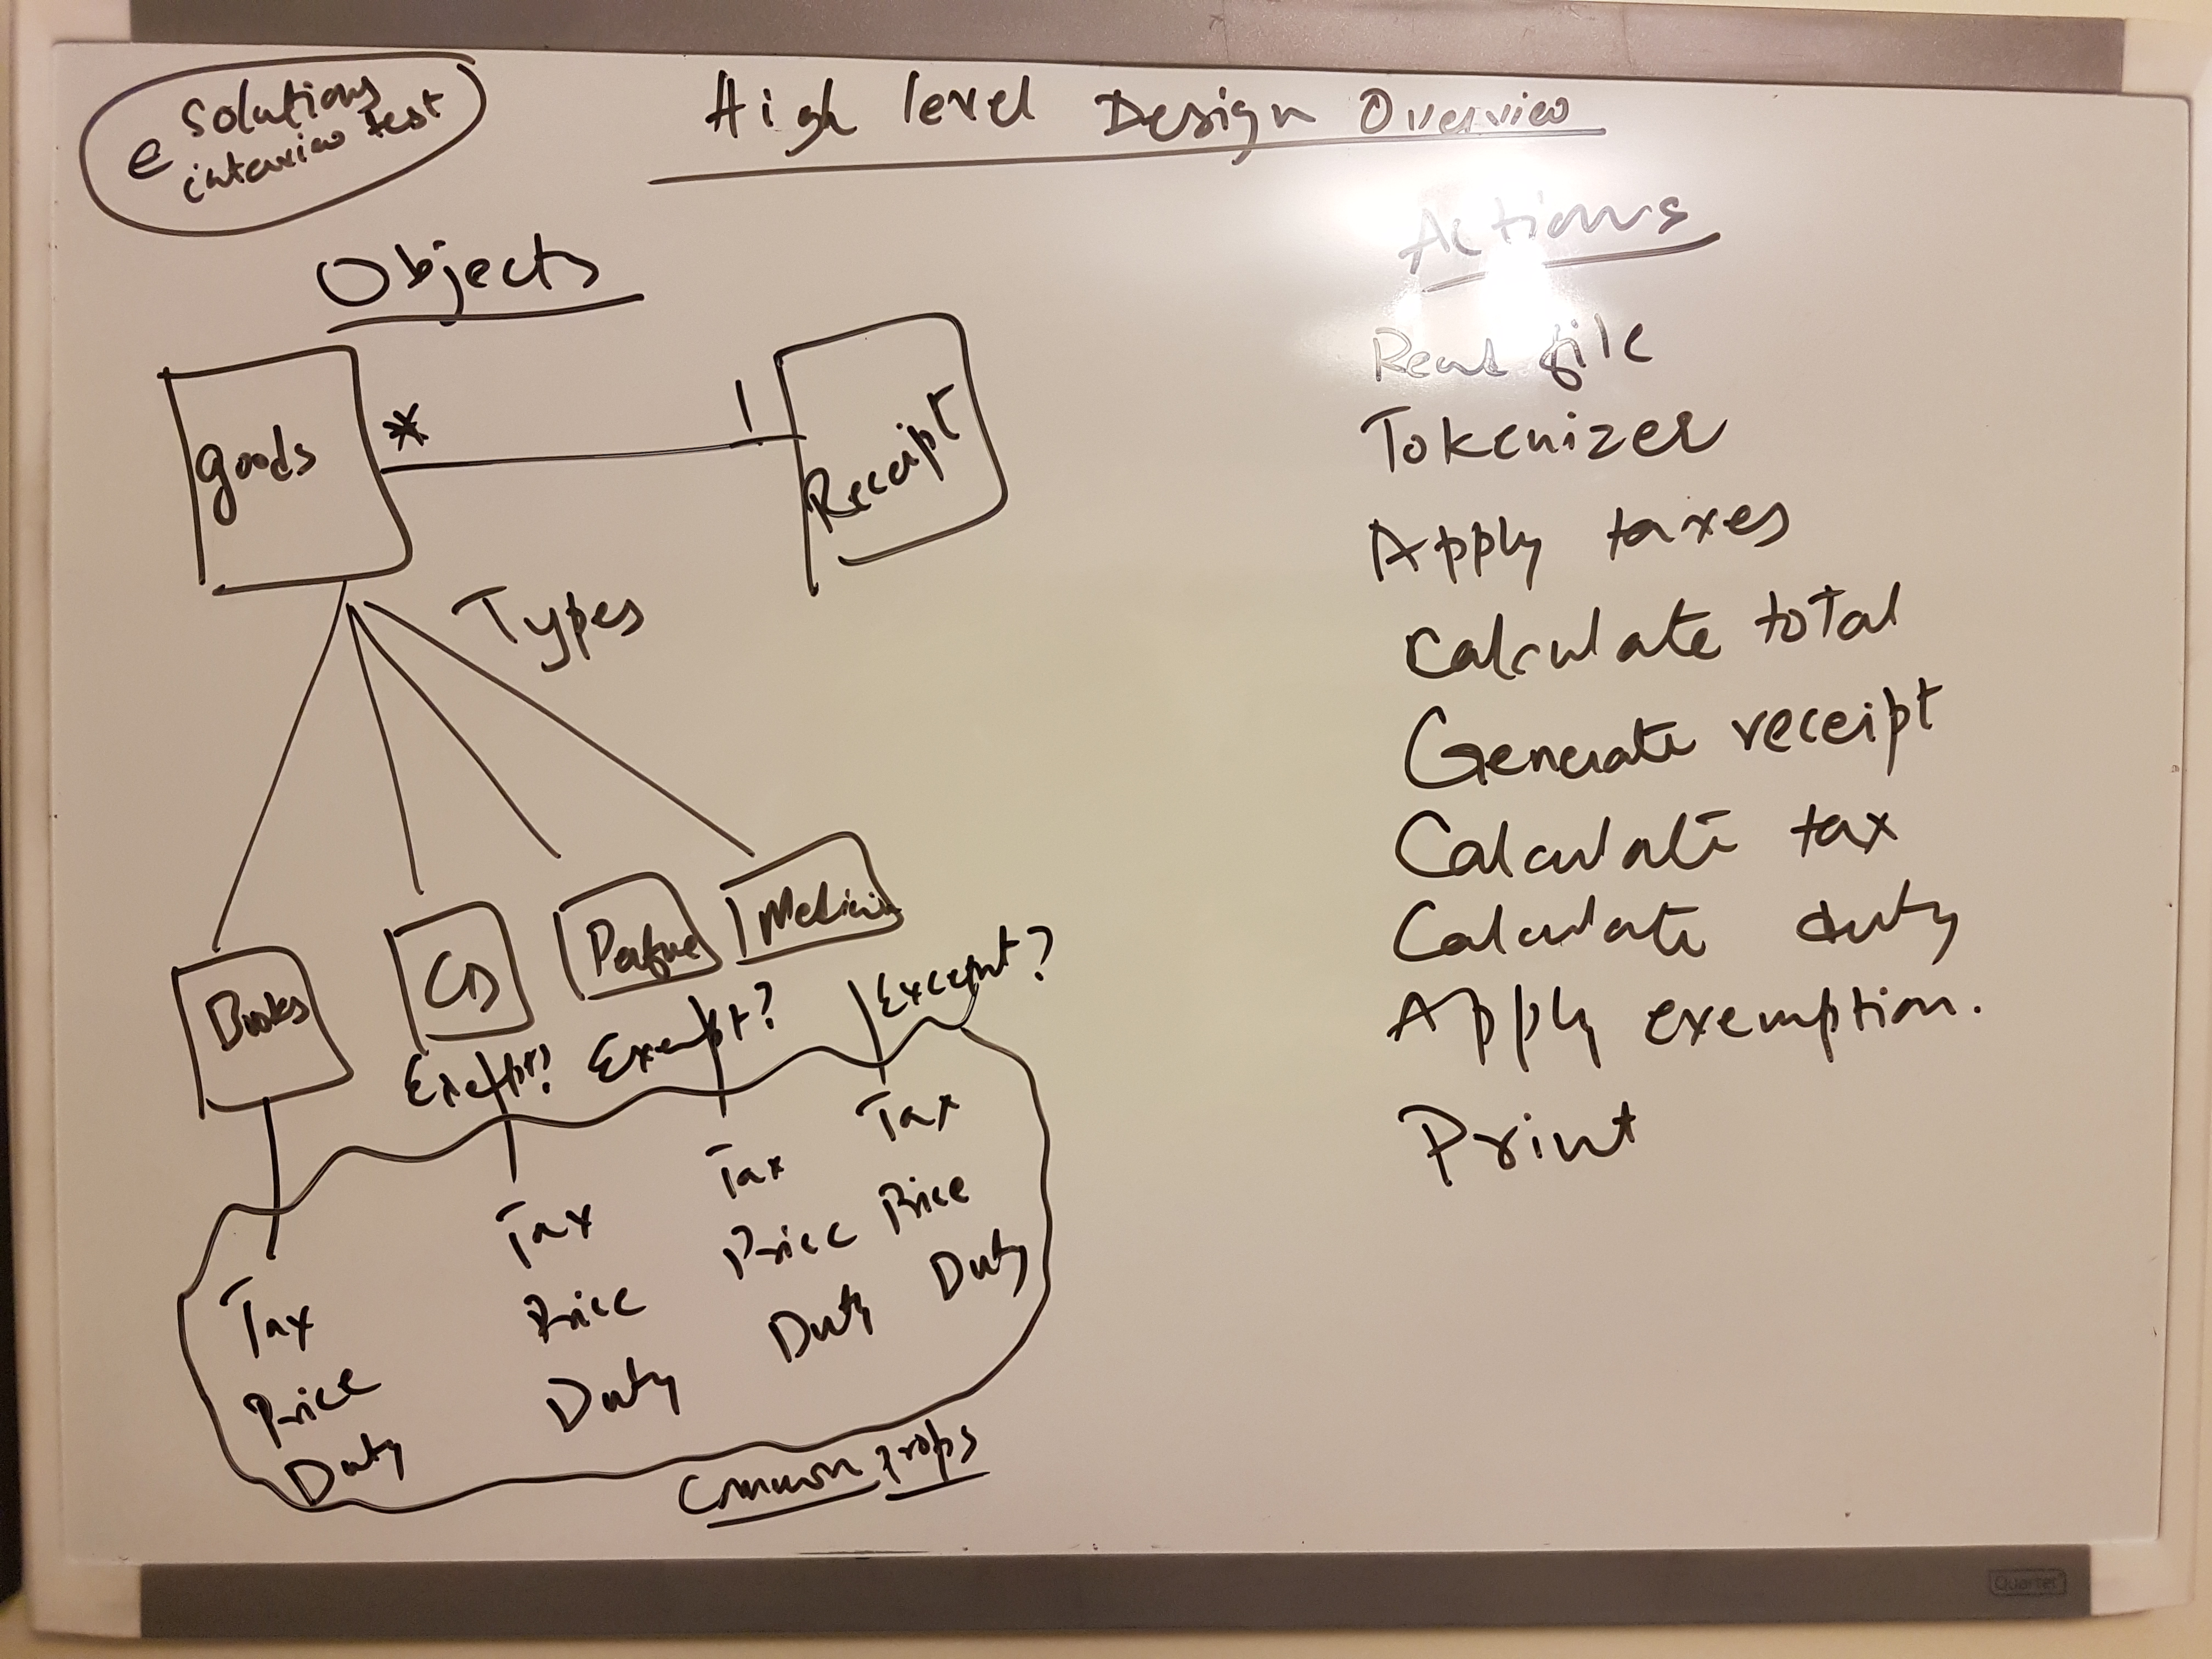 e solutions
interview test
High level Design Overview
Objects
goods
*
1
Receipt
Types
Books
CD
Perfume
Medicine
Exempt?
Exempt?
Exempt?
Tax
Price
Duty
Tax
Price
Duty
Tax
Price
Duty
Tax
Price
Duty
Common props
Actions
Read file
Tokenizer
Apply taxes
Calculate total
Generate receipt
Calculate tax
Calculate duty
Apply exemption.
Print
Quartet